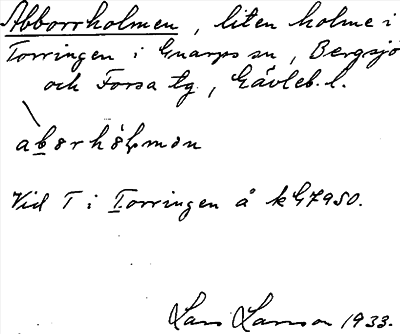 Abborrholmen, liten holme i
Torringen i Gnarps sn, Bergsjö
och Forsa tg, Gävleb. l.
Vid T i Torringen å k G7950.
Lars Larsson 1933.